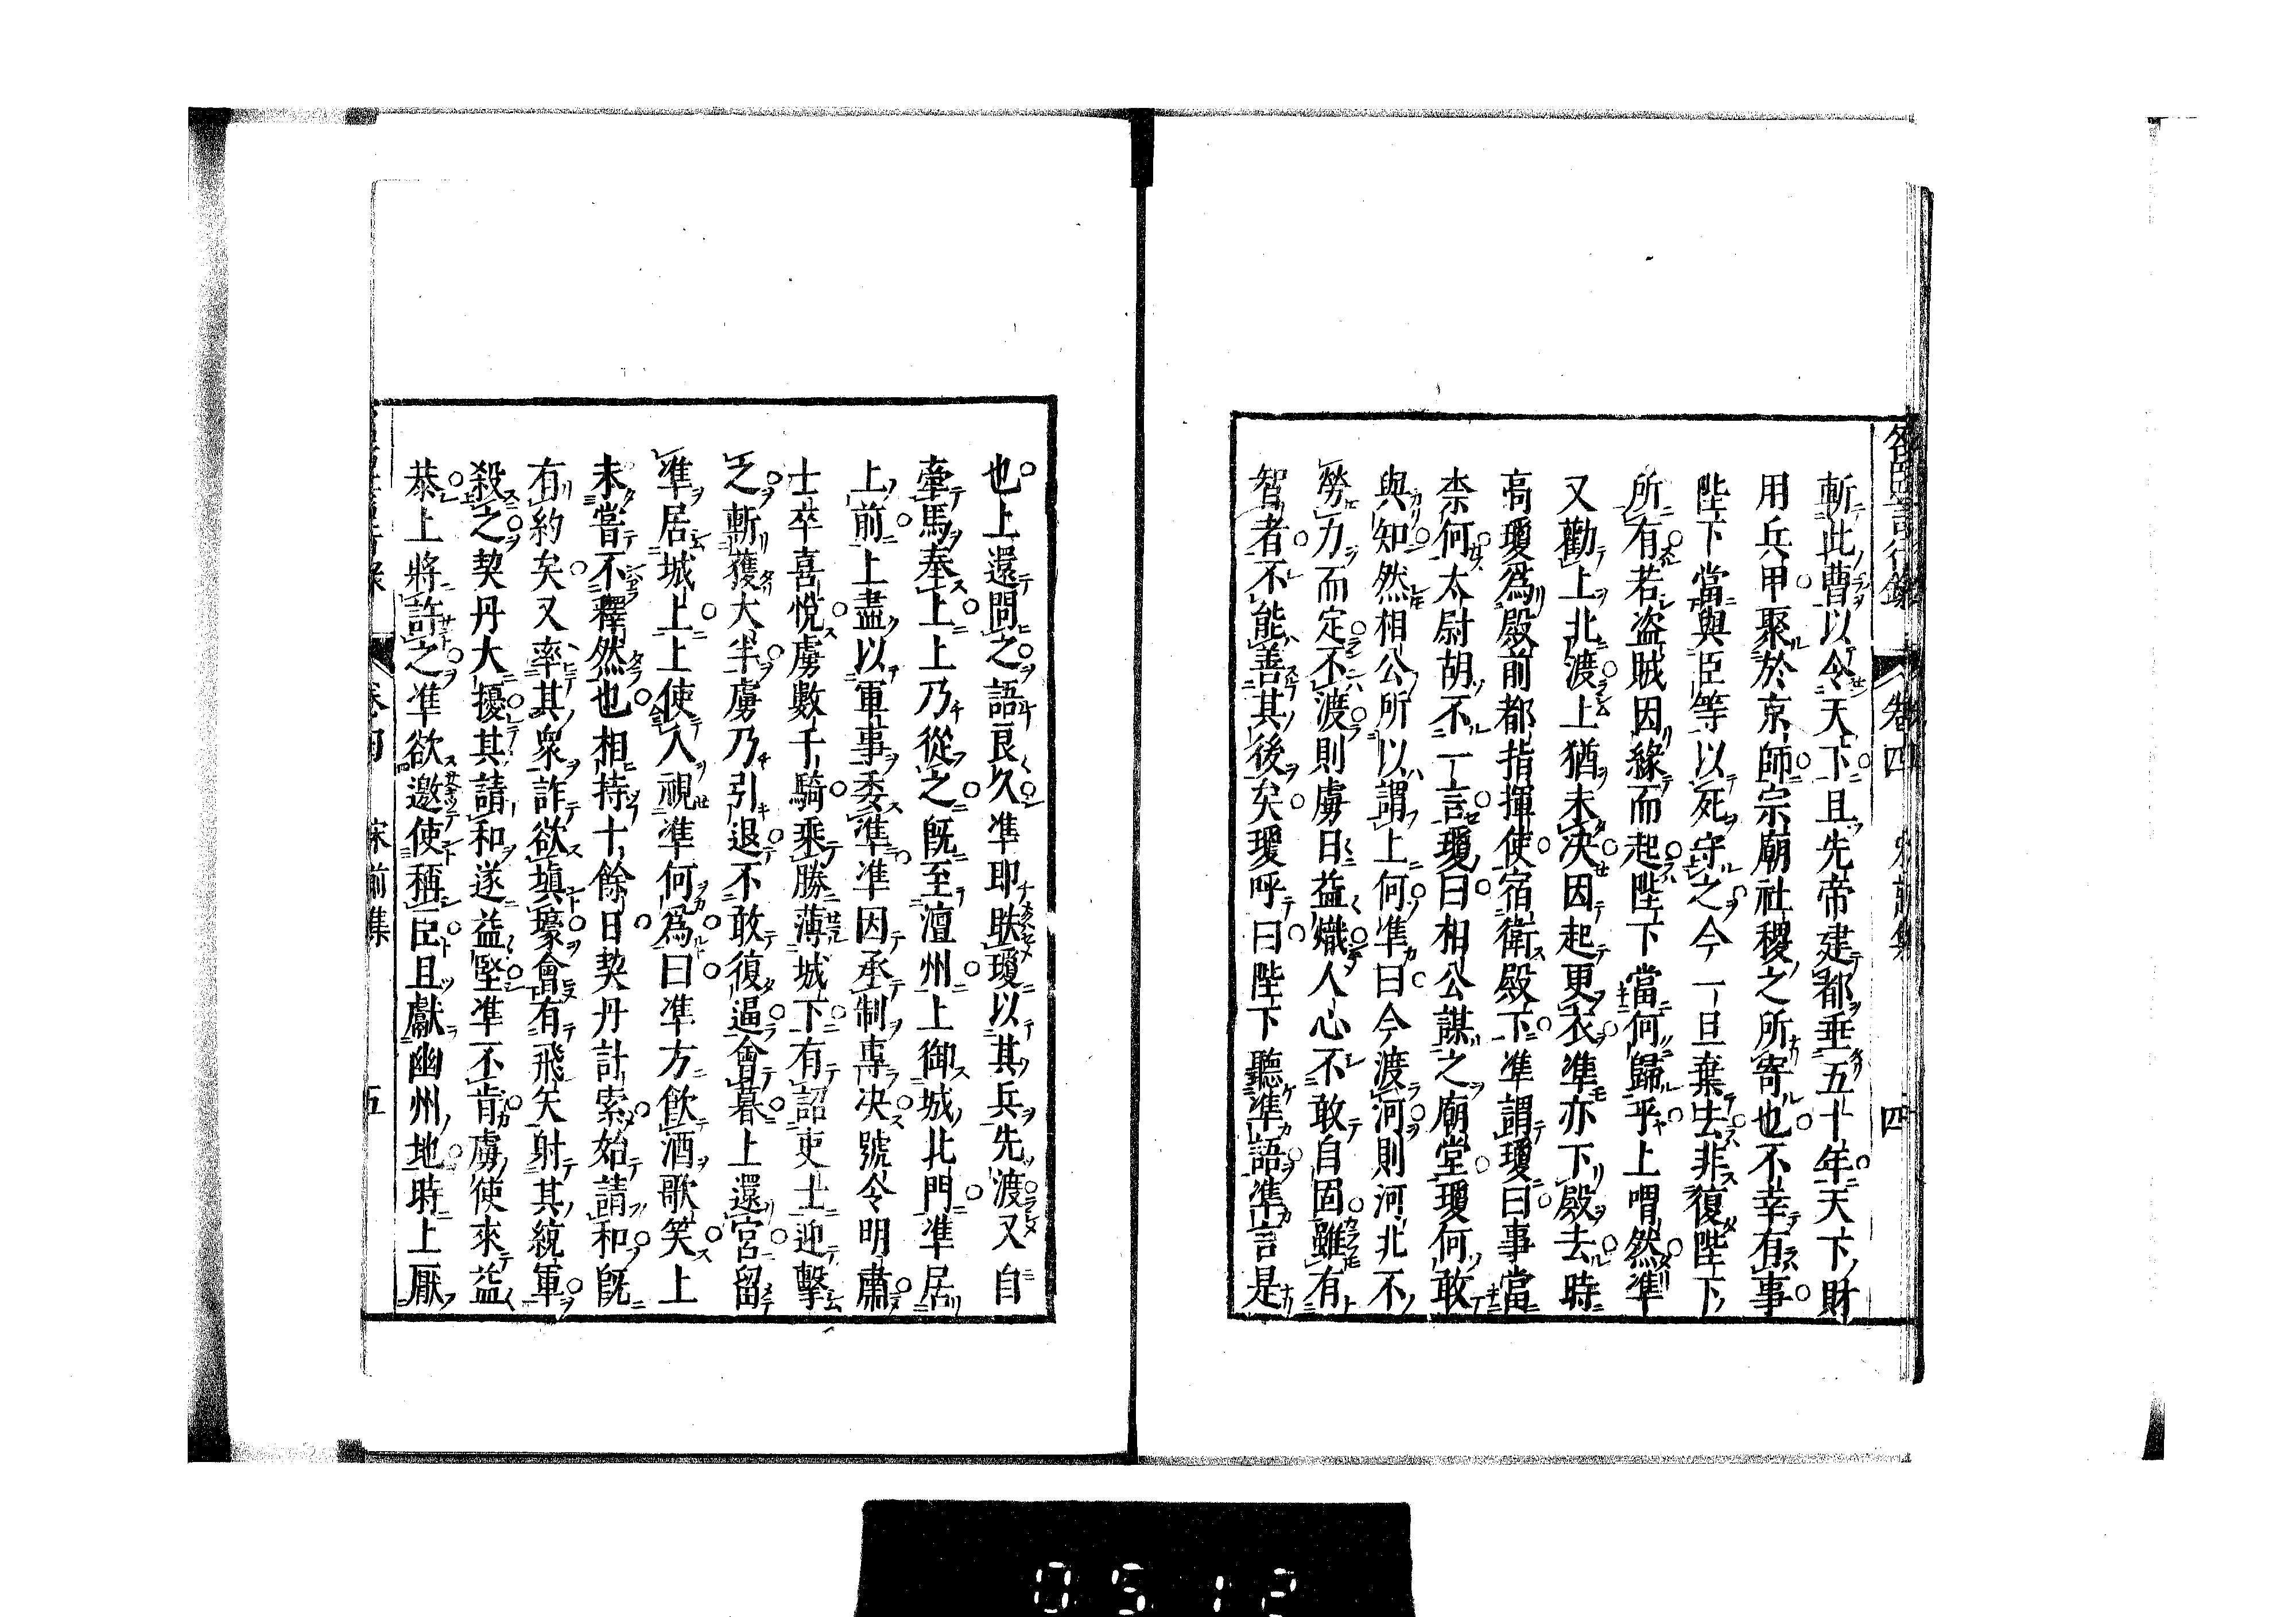 名臣言行錄 卷四 宋前集 四
斬此曹以令天下且先帝建都垂五十年天下財
用兵甲聚於京師宗廟社稷之所寄也不幸有事
陛下當與臣等以死守之今一旦棄去非復陛下
所有若盗賊因緣而起陛下當何歸乎上喟然凖
又勸上北渡上猶未决因起更衣凖亦下殿去時
高瓊爲殿前都指揮使宿衛殿下凖謂瓊曰事當
柰何太尉胡不一言瓊曰相公謀之廟堂瓊何敢
與知然相公所以謂上何凖曰今渡河則河北不
勞力而定不渡則虜日益熾人心不敢自固雖有
智者不能善其後矣瓊呼曰陛下聽凖語凖言是
也上還問之語良久凖即眣瓊以其兵先渡又自
牽馬奉上上乃從之旣至澶州上御城北門凖居
上前上盡以軍事委凖凖因承制專决號令明肅
士卒喜悅虜數千騎乘勝薄城下有詔吏士迎擊
之斬獲大半虜乃引退不敢復逼會暮上還宮留
凖居城上上使人視凖何爲曰凖方飮酒歌笑上
未嘗不釋然也相持十餘日契丹計索始請和旣
有約矣又率其衆詐欲塡壕會有飛矢射其統軍
殺之契丹大擾其請和遂益堅凖不肯虜使來益
恭上將許之凖欲邀使稱臣且獻幽州地時上厭
卷四 宋前集 五
0512